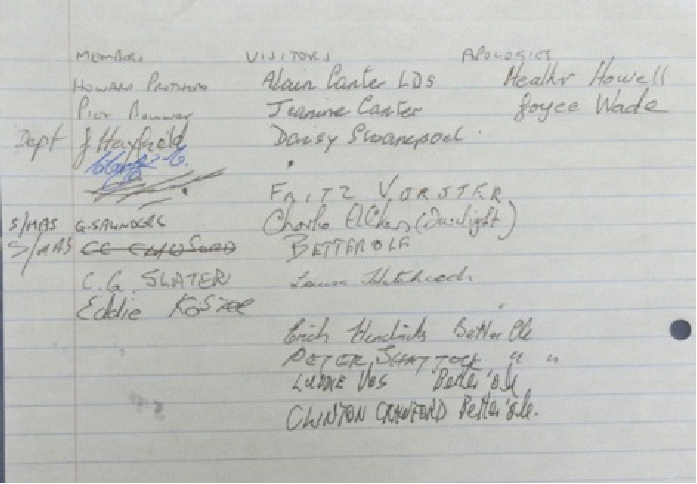 MEMBERS VISITORS APOLOGIES
HOWARD Alain Canter LDS Heather Howell
Piet Jeanine Canter Joyce Wade
Dept J Hayfield Daisy Swanepoel
FRITZ VORSTER
S/MAS G. SAUNDERS Charlie (Duelight)
S/MAS BETTEROLE
C.G. SLATER Laura Hitchcock
Eddie
Erich Hendricks Better Ole
PETER SHATTOCK " "
VOS Better 'ole
CLINTON CRAWFORD Better'ole.